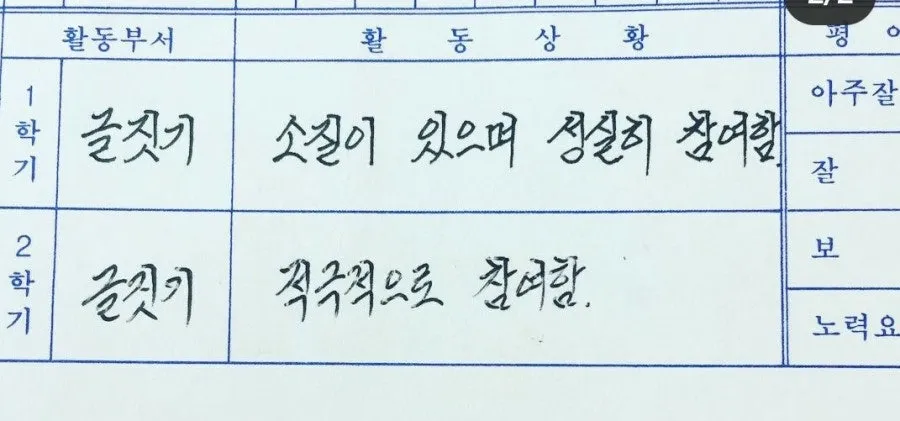 활동부서 활동상황 평
1학기 글짓기 소질이 있으며 성실히 참여함. 아주잘
잘
2학기 글짓기 적극적으로 참여함. 보
노력요